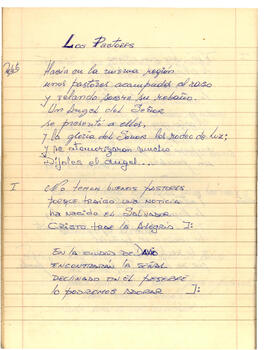 Los Pastores
Había en la misma región
unos pastores acampados al raso
y velando sobre su rebaño.
Un Angel del Señor
se presentó a ellos,
y la gloria del Señor los rodeo de luz;
y se atemorizaron mucho
Díjoles el angel...
I No teman buenos pastores
porque traigo una noticia
ha nacido el Salvador
Cristo trae la Alegria ]:
En la ciudad de David
encontrarán la señal
reclinado en el pesebre
lo podremos adorar ]: